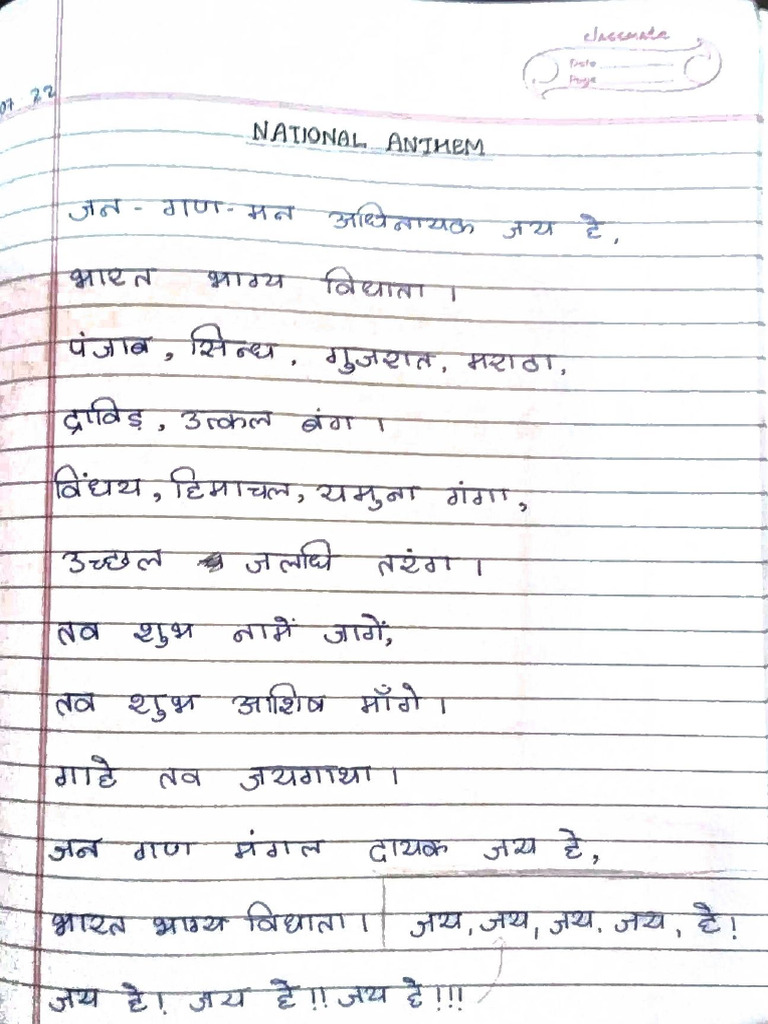 classmate
Date
Page
07 22
NATIONAL ANTHEM
जन - गण - मन अधिनायक जय हे,
भारत भाग्य विधाता ।
पंजाब, सिन्ध, गुजरात, मराठा,
द्राविड़, उत्कल बंग ।
विंधय, हिमाचल, यमुना गंगा,
उच्छल जलधि तरंग ।
तव शुभ नामें जागें,
तव शुभ आशिष माँगे ।
गाहे तव जयगाथा ।
जन गण मंगल दायक जय हे,
भारत भाग्य विधाता । जय, जय, जय, जय, हे!
जय हे! जय हे!! जय हे!!!